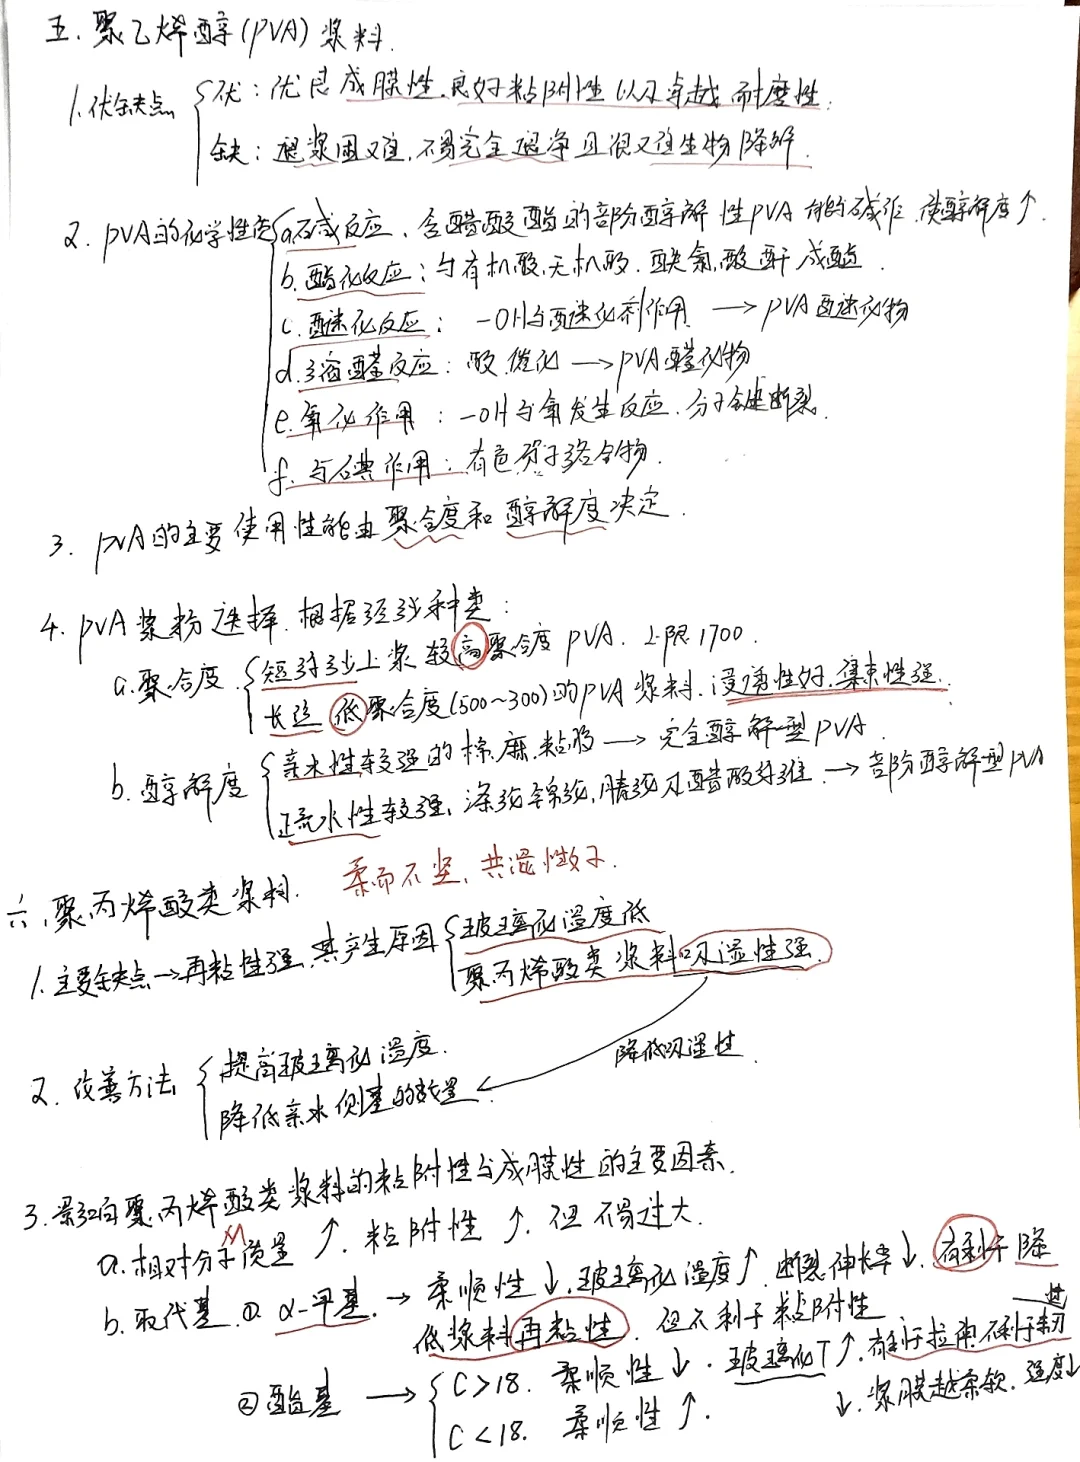 五. 聚乙烯醇(PVA)浆料.
1. 优缺点 优: 优良成膜性.良好粘附性以及卓越耐磨性;
缺: 退浆困难.不易完全退净且很难生物降解.
2. PVA的化学性质 a.碱反应. 含醋酸酯的部分醇解性PVA 碱 使醇解度↑.
b. 酯化反应: 与有机酸.无机酸. 酰氯,酸酐成酯.
c. 醚化反应: —OH与醚化剂作用 → PVA醚化物
d. 缩醛反应: 酸催化 → PVA醛化物
e. 氧化作用: —OH与氧发生反应. 分子链断裂.
f. 与碘作用: 有色分子络合物.
3. PVA的主要使用性能由聚合度和醇解度决定.
4. PVA浆粉选择. 根据经纱种类:
a. 聚合度. 短纤纱上浆 较高聚合度PVA. 上限1700.
长丝 低聚合度(500~300)的PVA浆料. 浸透性好.集束性强.
b. 醇解度 亲水性较强的棉.麻.粘胶 → 完全醇解型PVA.
疏水性较强, 涤纶锦纶,腈纶及醋酸纤维. → 部分醇解型PVA
六. 聚丙烯酸类浆料. 柔而不坚, 吸湿性好.
1. 主要缺点→再粘性强. 其产生原因 玻璃化温度低
聚丙烯酸类浆料吸湿性强.
降低吸湿性.
2. 改善方法 提高玻璃化温度.
降低亲水侧基的数量
3. 影响聚丙烯酸类浆料的粘附性与成膜性的主要因素.
a. 相对分子质量 M ↑. 粘附性 ↑. 但不易过大.
b. 取代基. ① α-甲基. → 柔顺性↓. 玻璃化温度↑. 断裂伸长率↓. 有利于降
低浆料再粘性. 但不利于粘附性
② 酯基 → C>18. 柔顺性↓. 玻璃化T↑.
C<18. 柔顺性↑. ↓. 浆膜越柔软. 强度↓